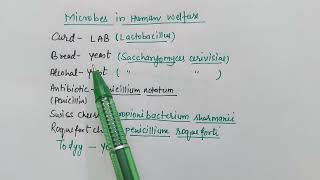 Microbes in Human Welfare
Curd - LAB (Lactobacillus)
Bread - yeast (Saccharomyces cerivisiae)
Alcohol - yeast ( " " )
Antibiotic - Penicillium notatum
(Penicillin)
Swiss cheese - Propionibacterium sharmanii
Roquefort penicillium roqueforti
Todyy -